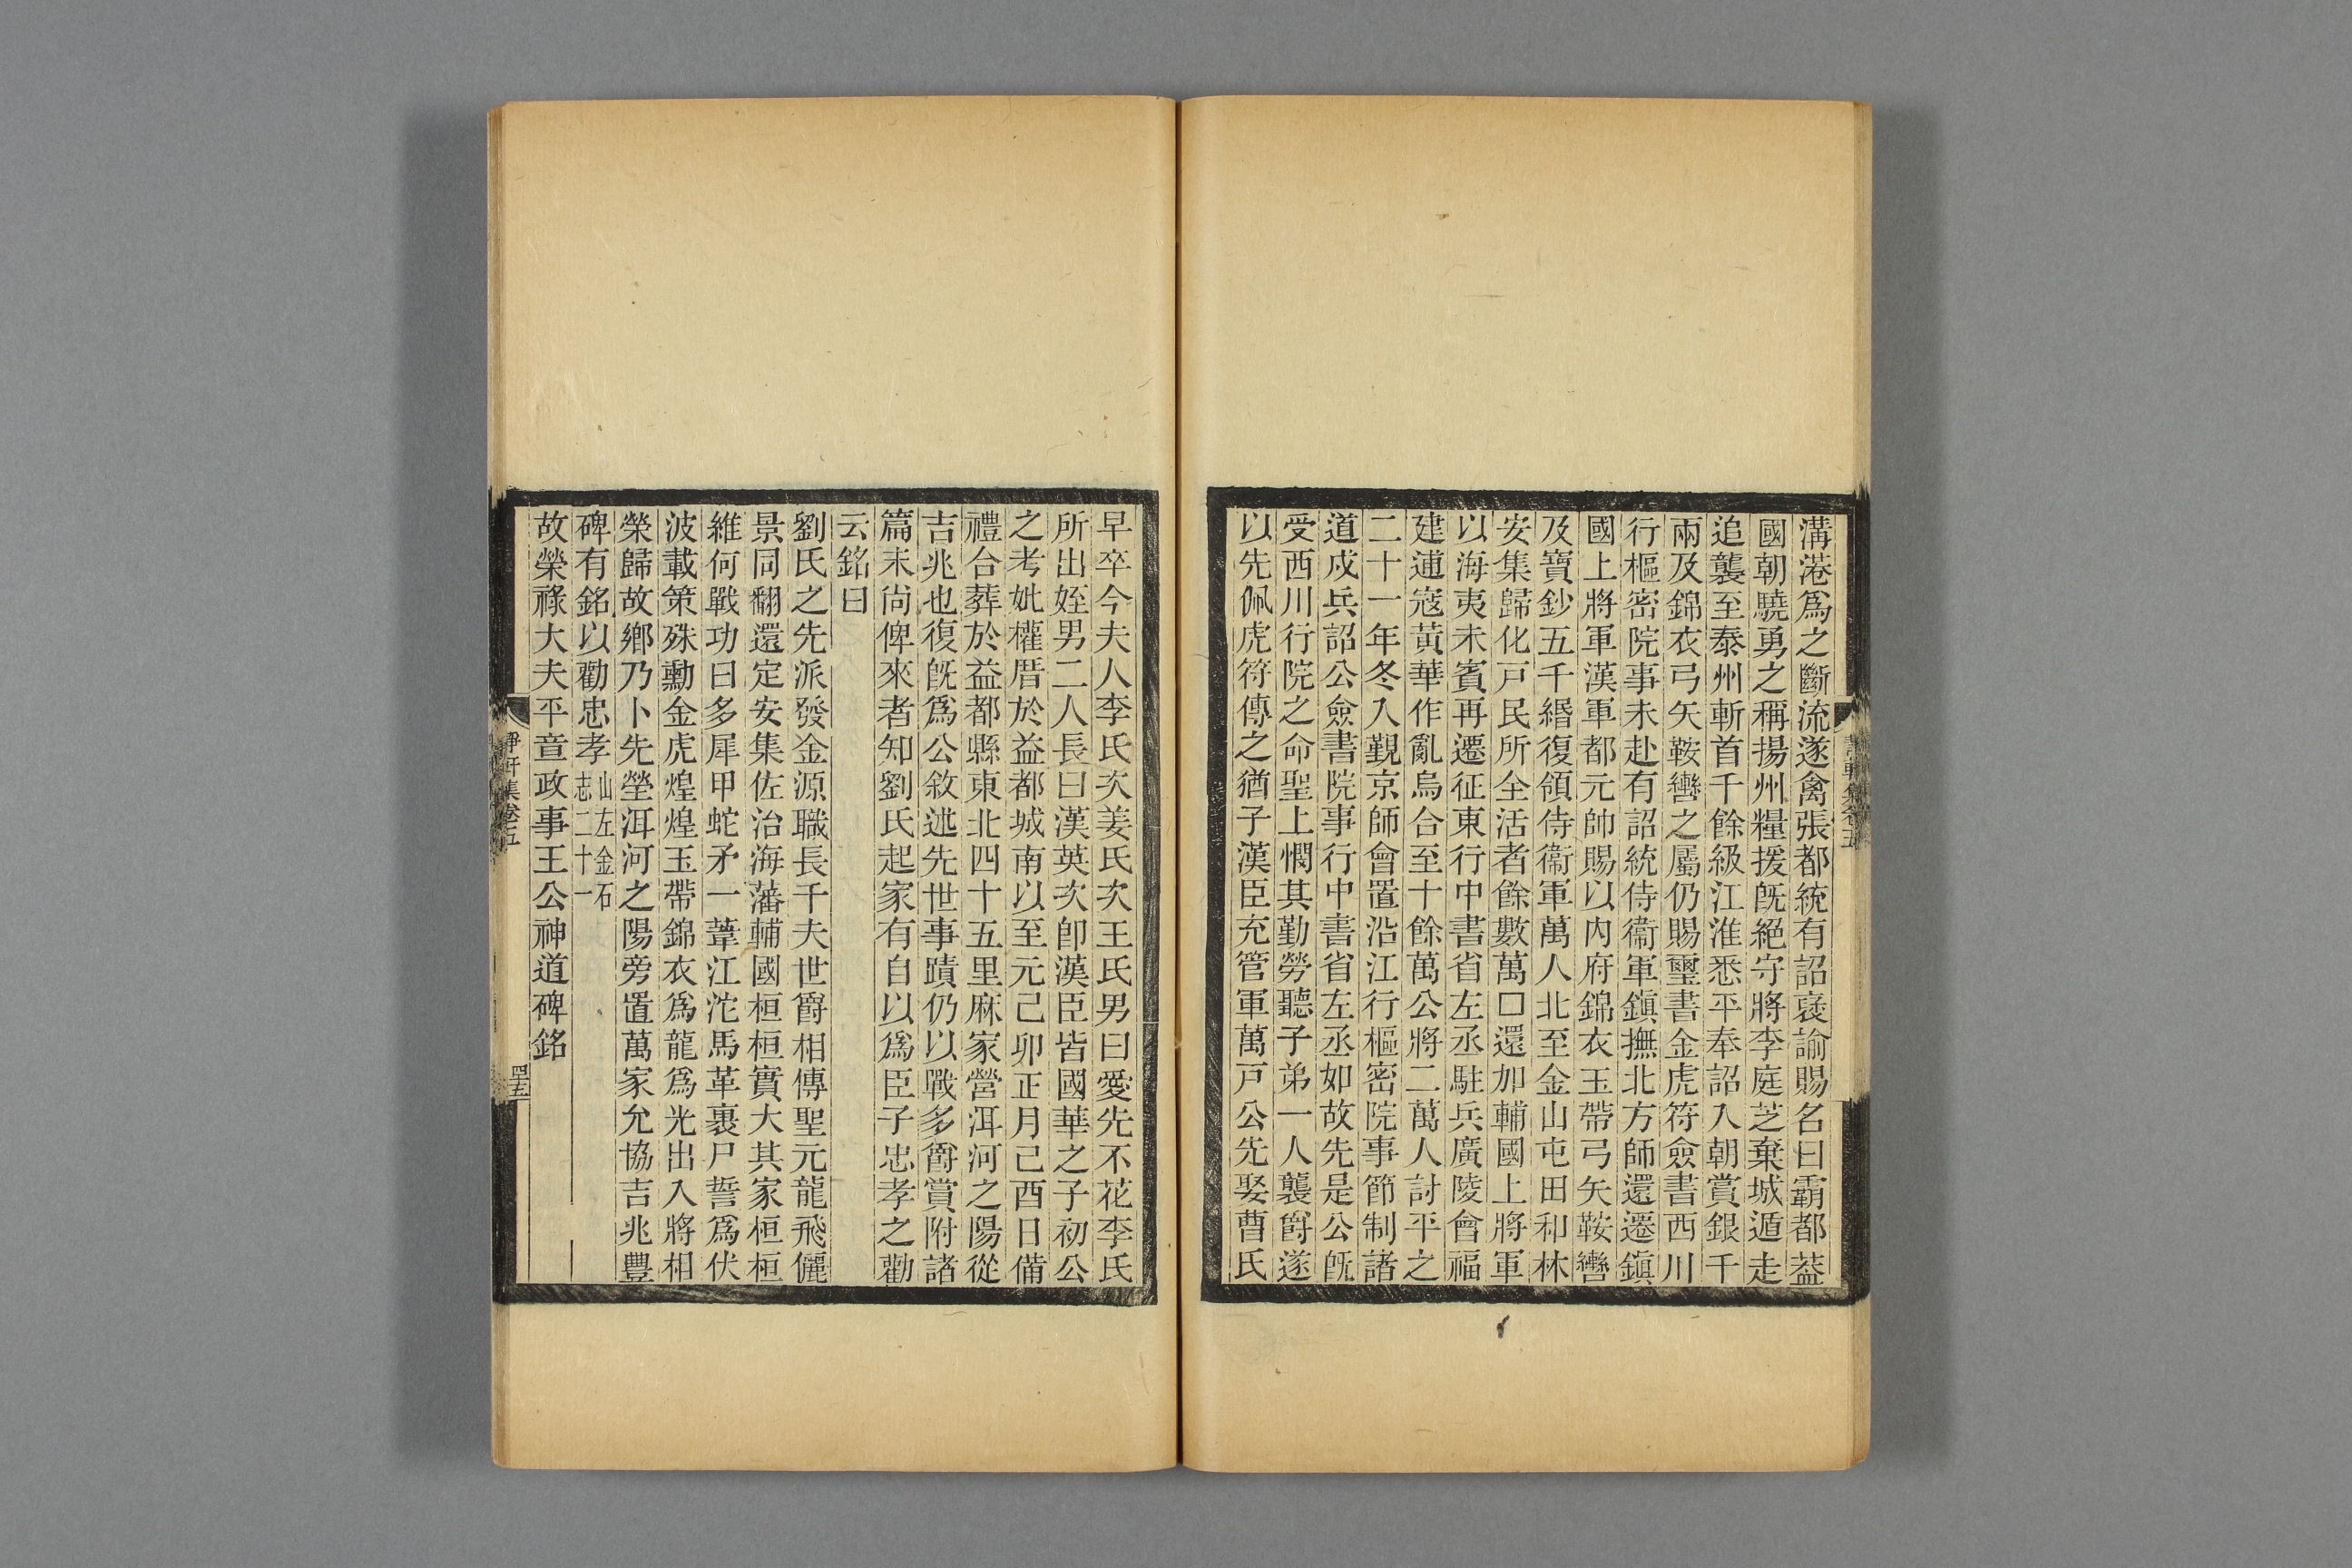 溝港爲之斷流遂禽張都統有詔襃諭賜名曰霸都葢
國朝驍勇之稱揚州糧援旣絕守將李庭芝棄城遁走
追襲至泰州斬首千餘級江淮悉平奉詔入朝賞銀千
兩及錦衣弓矢鞍轡之屬仍賜璽書金虎符僉書西川
行樞密院事未赴有詔統侍衞軍鎭撫北方師還遷鎭
國上將軍漢軍都元帥賜以內府錦衣玉帶弓矢鞍轡
及寶鈔五千緡復領侍衞軍萬人北至金山屯田和林
安集歸化戸民所全活者餘數萬口還加輔國上將軍
以海夷未賓再遷征東行中書省左丞駐兵廣陵會福
建逋寇黃華作亂烏合至十餘萬公將二萬人討平之
二十一年冬入覲京師會置沿江行樞密院事節制諸
道戍兵詔公僉書院事行中書省左丞如故先是公旣
受西川行院之命聖上憫其勤勞聽子弟一人襲爵遂
以先佩虎符傳之猶子漢臣充管軍萬戸公先娶曹氏
早卒今夫人李氏次姜氏次王氏男曰愛先不花李氏
所出姪男二人長曰漢英次卽漢臣皆國華之子初公
之考妣權厝於益都城南以至元己卯正月己酉日備
禮合葬於益都縣東北四十五里麻家營洱河之陽從
吉兆也復旣爲公敘述先世事蹟仍以戰多爵賞附諸
篇末尙俾來者知劉氏起家有自以爲臣子忠孝之勸
云銘曰
劉氏之先派發金源職長千夫世爵相傳聖元龍飛儷
景同翻還定安集佐治海藩輔國桓桓實大其家桓桓
維何戰功曰多犀甲蛇矛一葦江沱馬革裹尸誓爲伏
波載策殊勳金虎煌煌玉帶錦衣爲龍爲光出入將相
榮歸故鄕乃卜先塋洱河之陽旁置萬家允協吉兆豐
碑有銘以勸忠孝山左金石志二十一
故榮祿大夫平章政事王公神道碑銘
靜軒集卷五